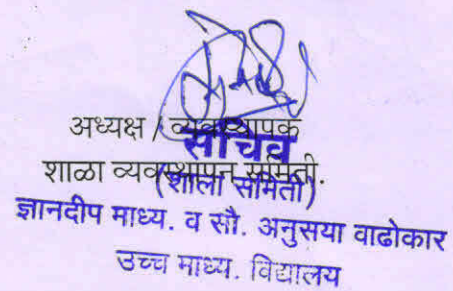 अध्यक्ष / व्यवस्थापक
सचिव
शाळा व्यवस्थापन समिती.
(शाला समिती)
ज्ञानदीप माध्य. व सौ. अनुसया वाढोकार
उच्च माध्य. विद्यालय